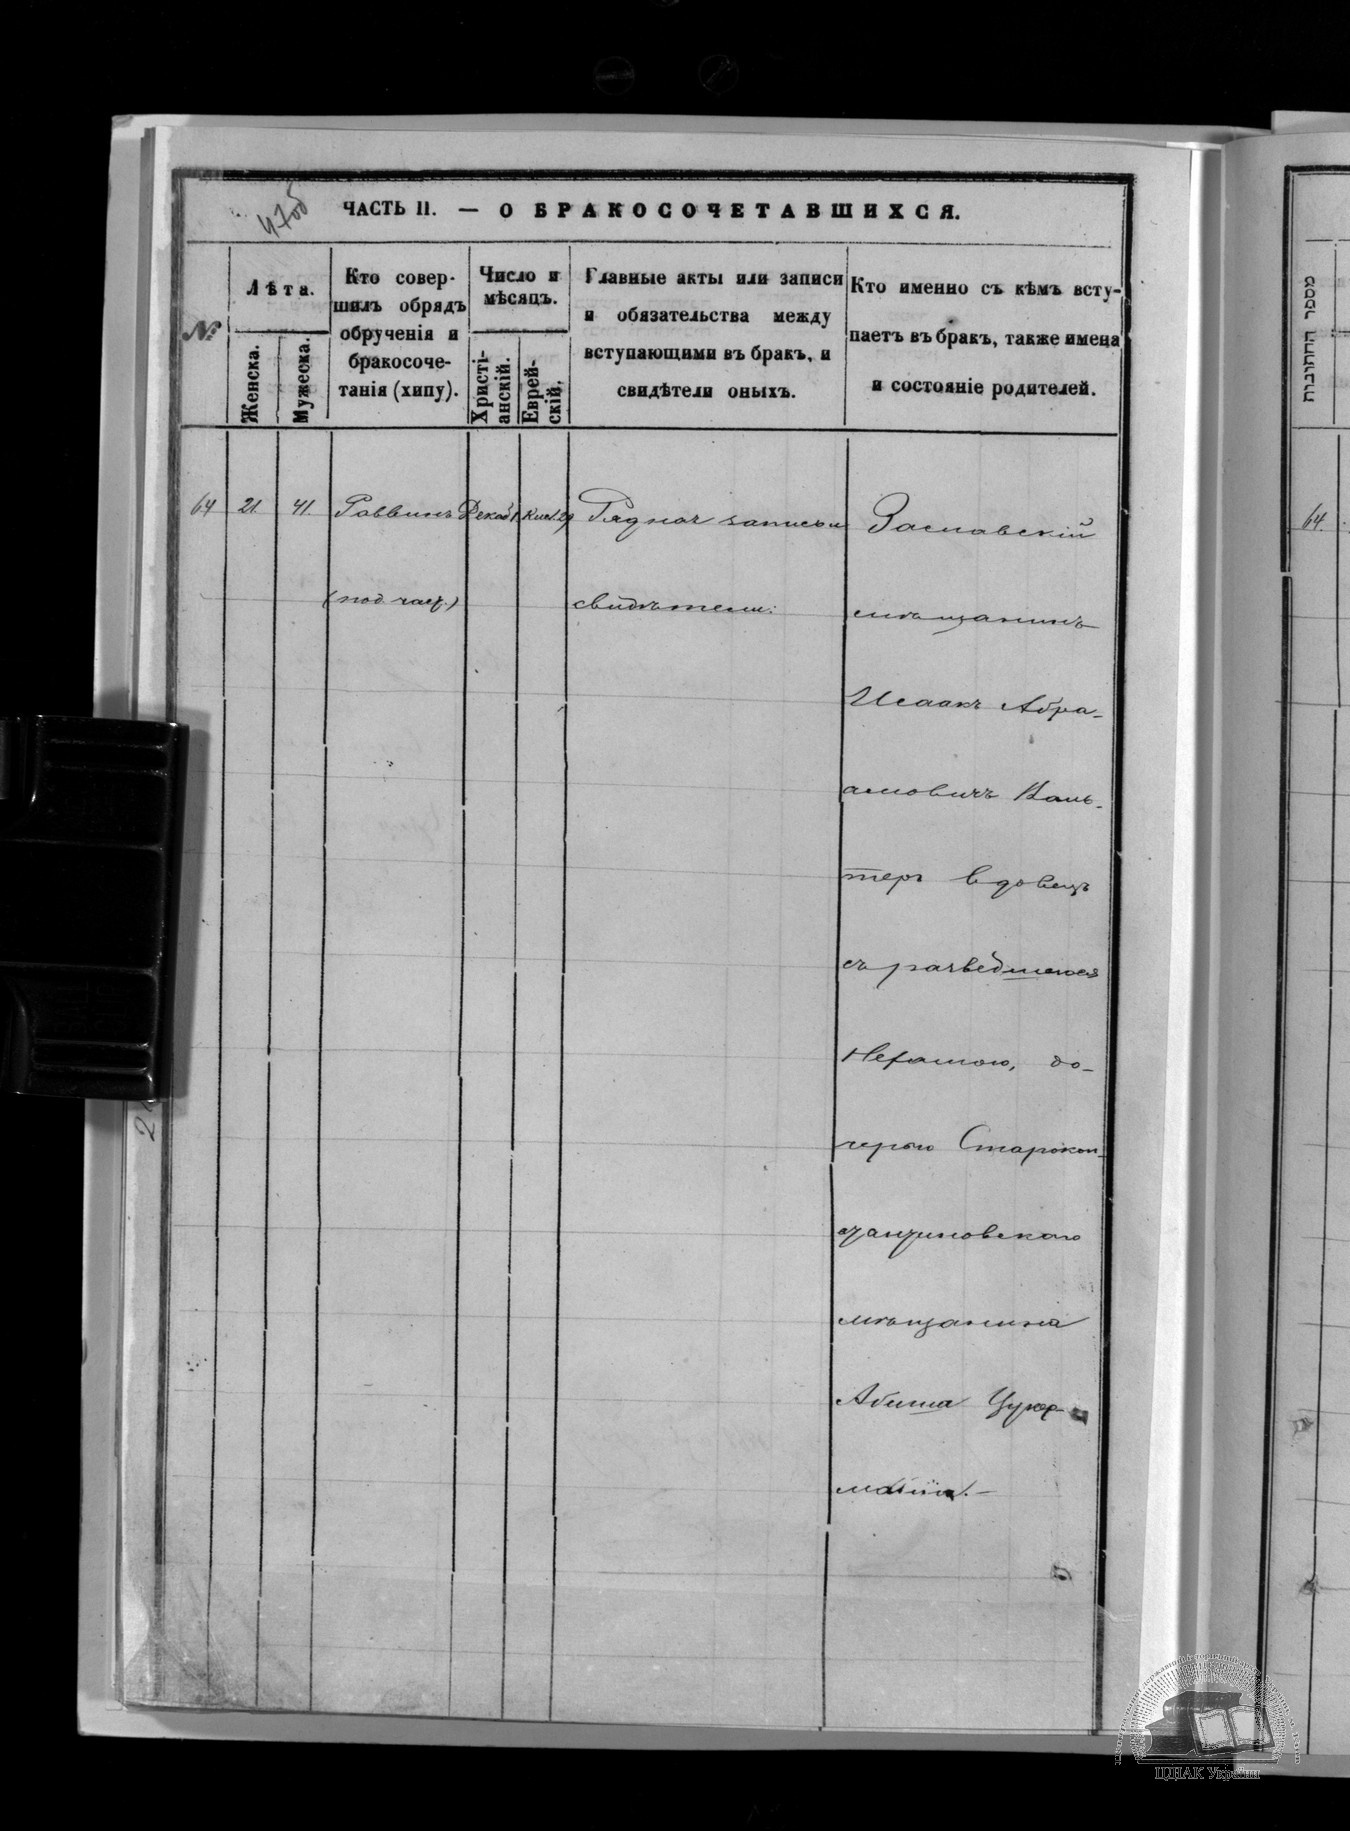 47об
ЧАСТЬ II. — О БРАКОСОЧЕТАВШИХСЯ.
№
Лѣта.
Женска.
Мужеска.
Кто совер-
шилъ обрядъ
обрученія и
бракосоче-
танія (хипу).
Число и
мѣсяцъ.
Христі-
анскій.
Еврей-
скій.
Главные акты или записи
и обязательства между
вступающими въ бракъ, и
свидѣтели оныхъ.
Кто именно съ кѣмъ всту-
паетъ въ бракъ, также имена
и состояніе родителей.
64 21. 41. Раввинъ Декаб. Кисл. 29 Рядная запись и Заславскій
свидѣтели: мѣщанинъ
Исаакъ Абра-
амовичъ Валь-
теръ вдовецъ
съ разведшеюся
Нехамою, до-
черью Старокон-
стантиновскаго
мѣщанина
Абиша Цукер-
мана.—
מספר החתונות
64.
ЦДІАК України